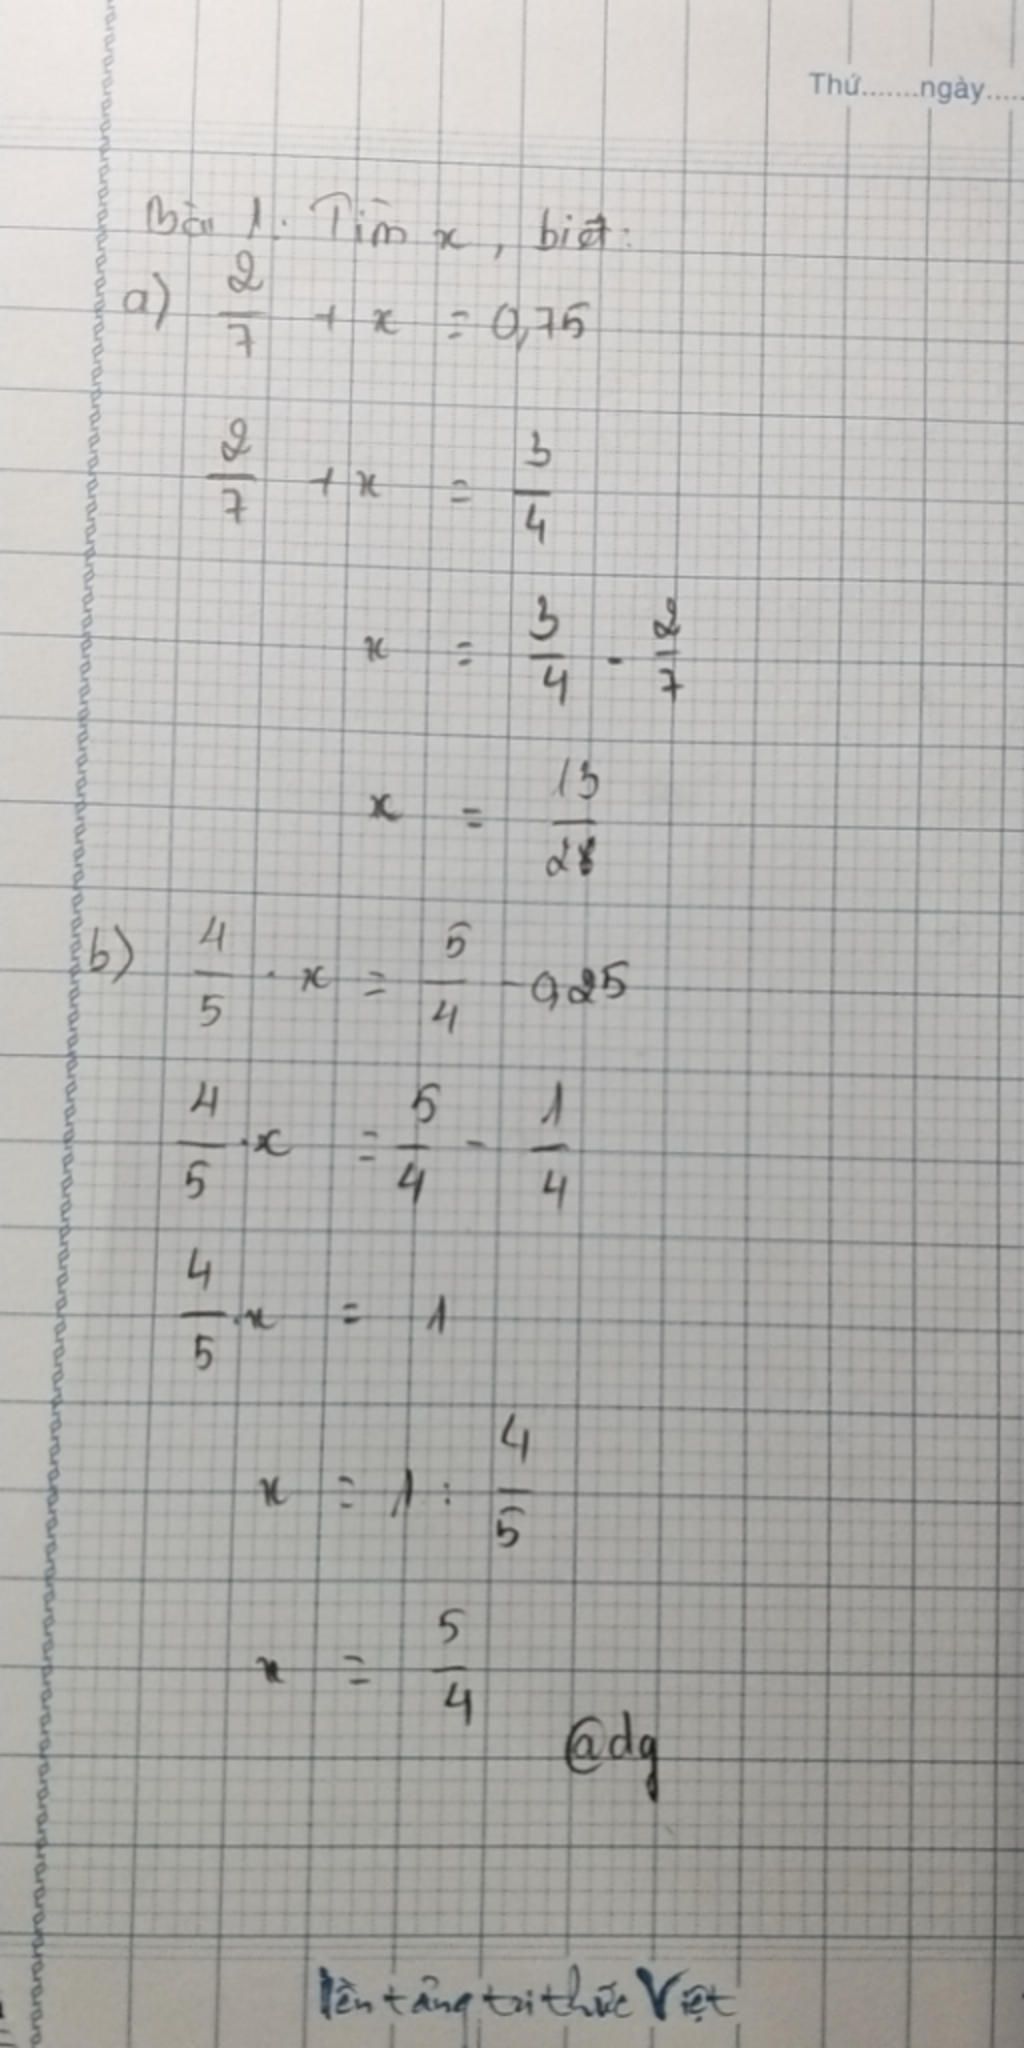 Thứ.......ngày.....
Bài 1: Tìm x, biết:
a) 2/7 + x = 0,75
2/7 + x = 3/4
x = 3/4 - 2/7
x = 13/28
b) 4/5 . x = 5/4 - 0,25
4/5 . x = 5/4 - 1/4
4/5 . x = 1
x = 1 : 4/5
x = 5/4
@dg
lền tảng tri thức Việt